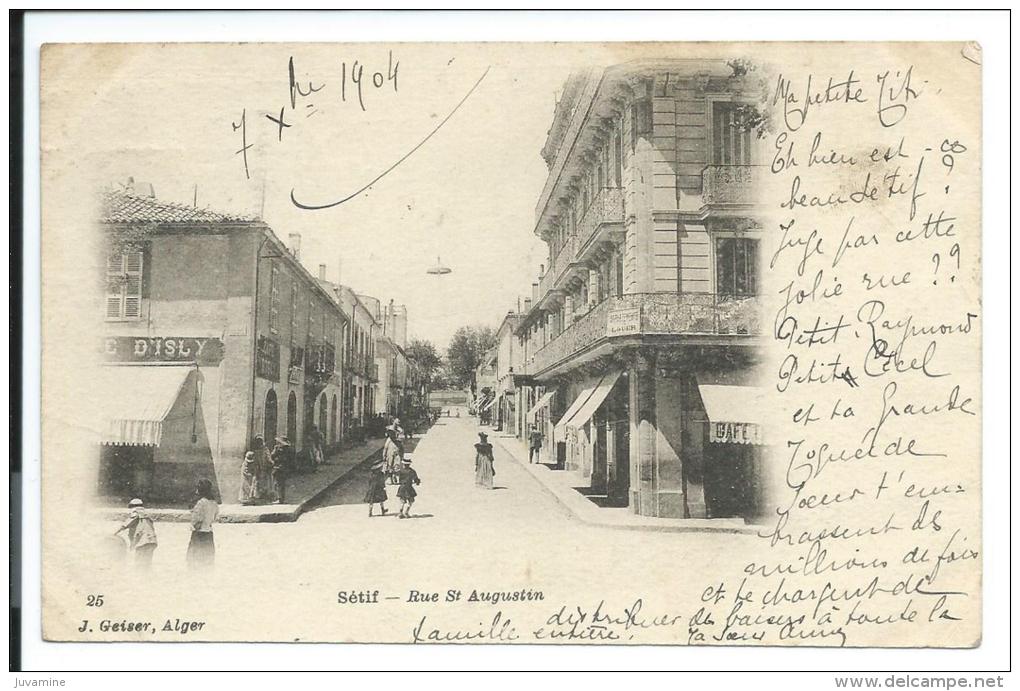 7 Xbre 1904
Ma petite Titi
Eh bien est-ce
beau Sétif?
Juge par cette
jolie rue??
Petit Raymond
Petite Cécel
et ta Grande
de
Soeur t'em-
brassent des
millions de fois
et te chargent de
distribuer des baisers à toute la
famille entière. Ta Soeur
C D'ISLY
CAFÉ
25
Sétif - Rue St Augustin
J. Geiser, Alger
juvamine
www.delcampe.net